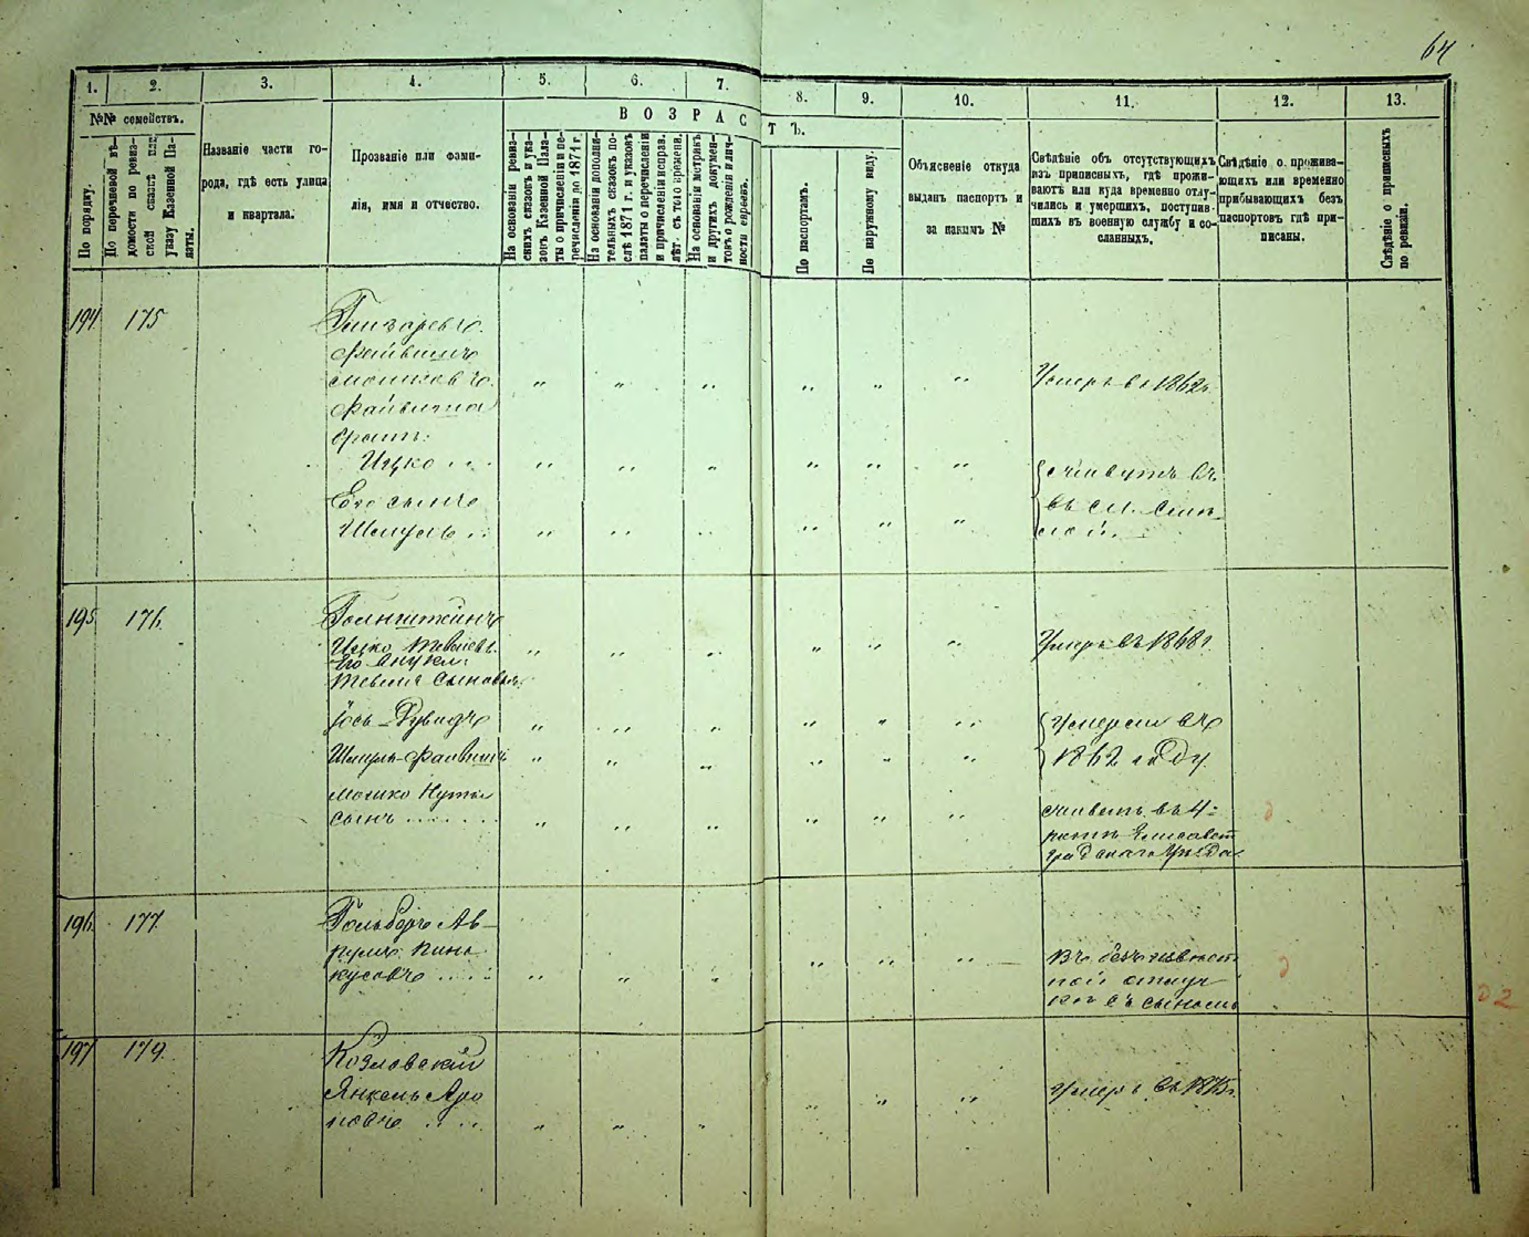 64
1.
2.
3.
4.
5.
6.
7.
8.
9.
10.
11.
12.
13.
№№ семействъ.
По порядку.
По перечневой вѣ-
домости по ревиз-
ской сказкѣ или
указу Казенной Па-
латы.
Названіе части го-
рода, гдѣ есть улица
и квартала.
Прозваніе или фами-
лія, имя и отчество.
ВОЗРАС
ТЪ.
На основаніи ревиз-
скихъ сказокъ и ука-
зовъ Казенной Пала-
ты о причисленіи и пе-
речисленіи до 1871 г.
На основаніи дополни-
тельныхъ сказокъ по-
слѣ 1871 г. и указовъ
палаты о перечисленіи
и причисленіи исправ.
лѣт. съ того времени.
На основаніи метрикъ
и другихъ докумен-
товъ о рожденіи и лич-
ности евреевъ.
По паспортамъ.
По наружному виду.
Объясненіе откуда
выданъ паспортъ и
за какимъ №
Свѣдѣніе объ отсутствующихъ
изъ приписныхъ, гдѣ прожи-
ваютъ или куда временно отлу-
чились и умершихъ, поступив-
шихъ въ военную службу и со-
сланныхъ.
Свѣдѣніе о прожива-
ющихъ или временно
прибывающихъ безъ
паспортовъ гдѣ при-
писаны.
Свѣдѣніе о приписныхъ
по ревизіи.
194 175
Файвишъ
Мошковъ
Умеръ въ 1862г.
Файвиша
братъ:
Ицко
живутъ въ
Его сынъ
Шмуль
195 176
Гольнштейнъ
Ицко Тевелевъ
Умеръ въ 1868г.
Его внуки:
Тевеля сыновья
Іось-Дувидъ
Умерли въ
Шмуль-Файвишъ
1862 году
Мошко Нутъ
сынъ
живетъ въ
Елисавет
градскаго уѣзда
196 177
Гольберъ Ав-
румъ Пинь-
кусовъ
въ безъизвѣст
ной отлуч
кѣ съ сыномъ
д 2
197 179
Козловскій
Янкель Аро
новъ
Умеръ въ 1875г.